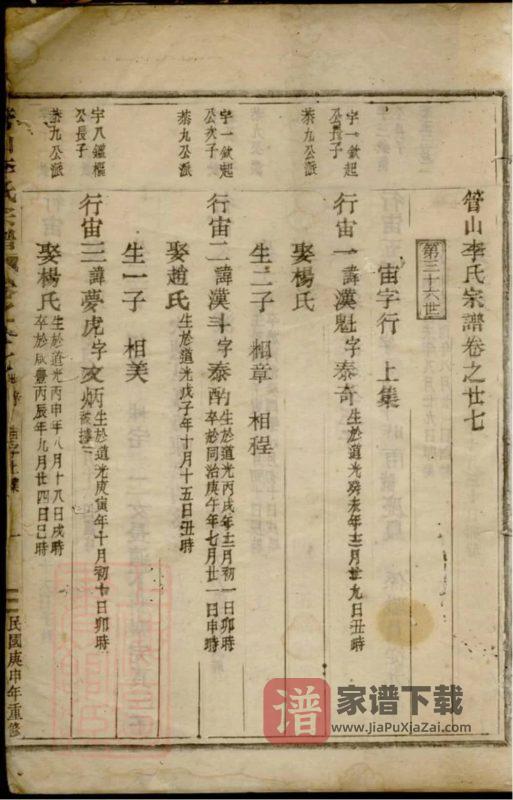 管山李氏宗譜卷之廿七
第三十六世
宙字行 上集
字一欽起
公長子
茶九公派
行宙一諱漢魁字泰奇生於道光癸未年十二月廿九日丑時
娶楊氏
生二子 相章 相程
字一欽起
公次子
茶九公派
行宙二諱漢斗字泰酌生於道光丙戌年十二月初一日卯時
卒於同治庚午年七月廿一日申時
娶趙氏生於道光戊子年十月十五日丑時
生一子 相美
宇八鑑樞
公長子
茶九公派
行宙三諱夢虎字文炳生於道光庚寅年十月初十日卯時
被擄
娶楊氏生於道光丙申年八月十八日戌時
卒於咸豐丙辰年九月廿四日巳時
民國庚申年重修
譜
家谱下载
www.JiaPuXiaZai.com